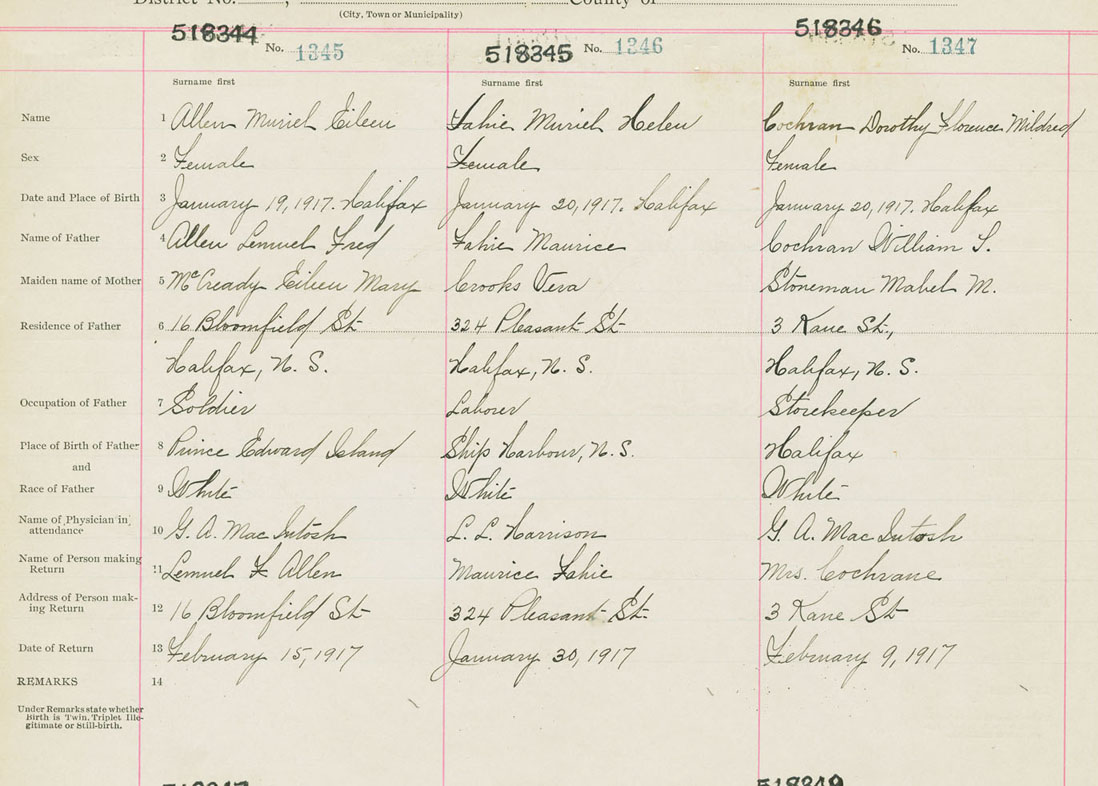 District No. , County of
(City, Town or Municipality)
518344 No. 1345 518345 No. 1346 518346 No. 1347
Surname first Surname first Surname first
Name 1 Allen Muriel Eileen Fahie Muriel Helen Cochran Dorothy Florence Mildred
Sex 2 Female Female Female
Date and Place of Birth 3 January 19, 1917. Halifax January 20, 1917. Halifax January 20, 1917. Halifax
Name of Father 4 Allen Lemuel Fred Fahie Maurice Cochran William S.
Maiden name of Mother 5 McCready Eileen Mary Crooks Vera Stoneman Mabel M.
Residence of Father 6 16 Bloomfield St 324 Pleasant St 3 Kane St.,
Halifax, N. S. Halifax, N. S. Halifax, N. S.
Occupation of Father 7 Soldier Laborer Storekeeper
Place of Birth of Father 8 Prince Edward Island Ship Harbour, N. S. Halifax
and
Race of Father 9 White White White
Name of Physician in
attendance 10 G. A. MacIntosh L. L. Harrison G. A. MacIntosh
Name of Person making
Return 11 Lemuel F Allen Maurice Fahie Mrs. Cochrane
Address of Person mak-
ing Return 12 16 Bloomfield St 324 Pleasant St. 3 Kane St
Date of Return 13 February 15, 1917 January 30, 1917 February 9, 1917
REMARKS 14
Under Remarks state whether
Birth is Twin, Triplet Ille-
gitimate or Still-birth.
518347 518349